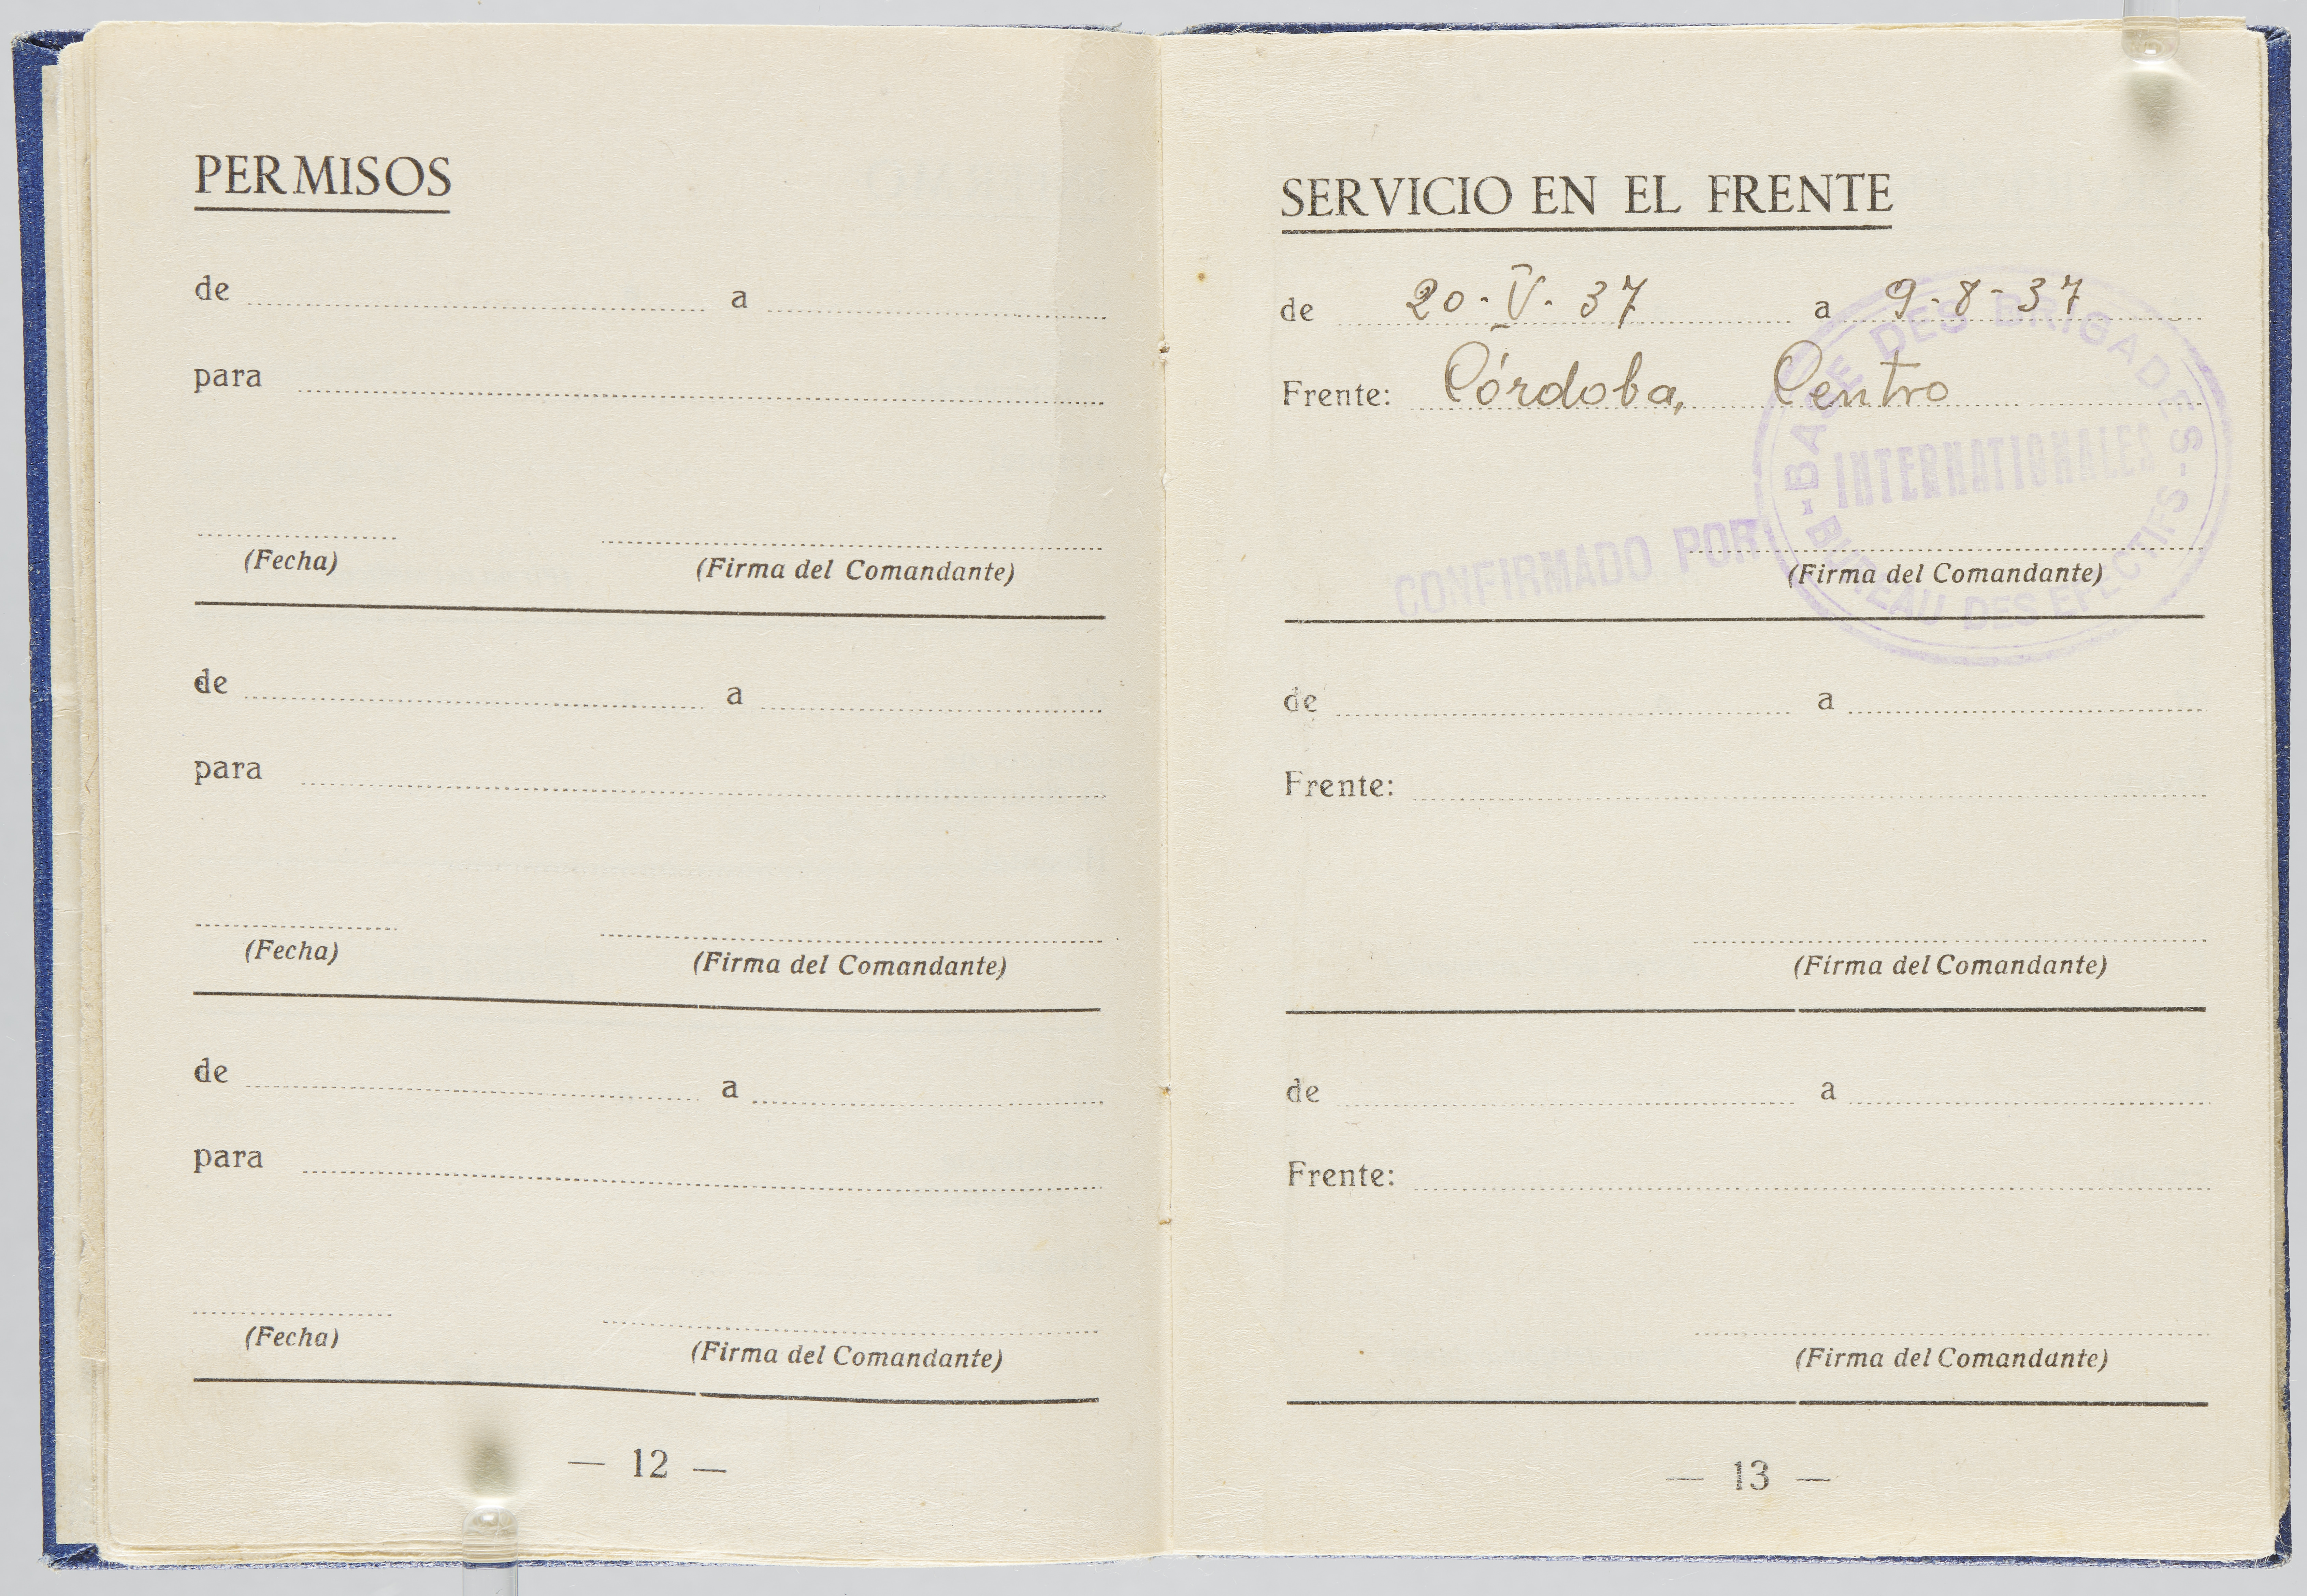 PERMISOS
de a
para
(Fecha) (Firma del Comandante)
de a
para
(Fecha) (Firma del Comandante)
de a
para
(Fecha) (Firma del Comandante)
— 12 —
SERVICIO EN EL FRENTE
de 20-V-37 a 9-8-37
Frente: Córdoba, Centro
CONFIRMADO POR
BASE DES BRIGADES
INTERNATIONALES
BUREAU DES EFECTIFS
(Firma del Comandante)
de a
Frente:
(Firma del Comandante)
de a
Frente:
(Firma del Comandante)
— 13 —